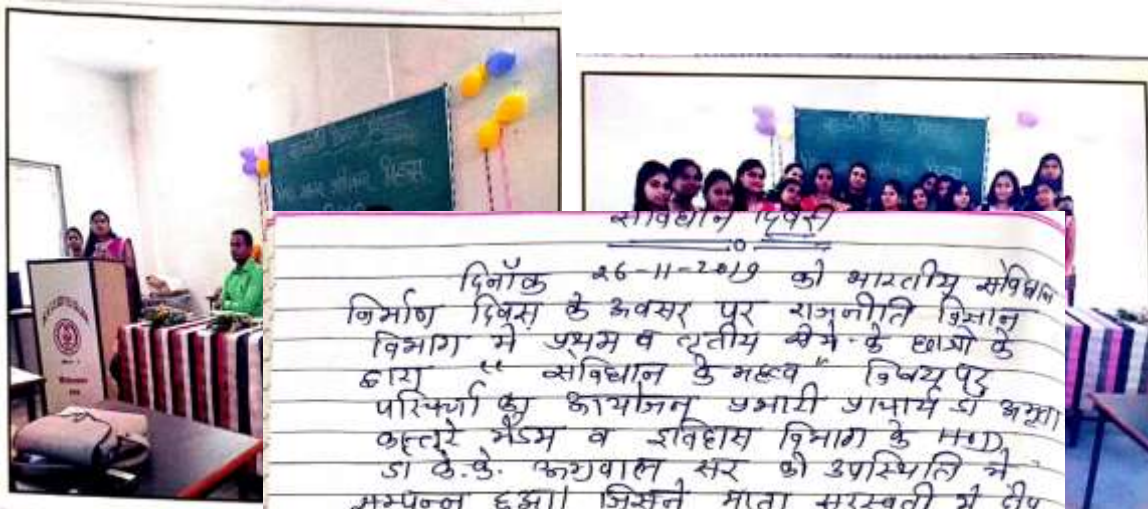 संविधान दिवस
दिनाँक 26-11-2019 को भारतीय संविधान
निर्माण दिवस के अवसर पर राजनीति विज्ञान
विभाग में प्रथम व तृतीय सेमे. के छात्रों के
द्वारा "संविधान के महत्व" विषय पर
परिचर्चा का आयोजन प्रभारी प्राचार्य डा
कस्तूरे मैडम व इतिहास विभाग के HOD,
डा के.के. अग्रवाल सर की उपस्थिति में
सम्पन्न हुआ। जिसने माता सरस्वती में दीप